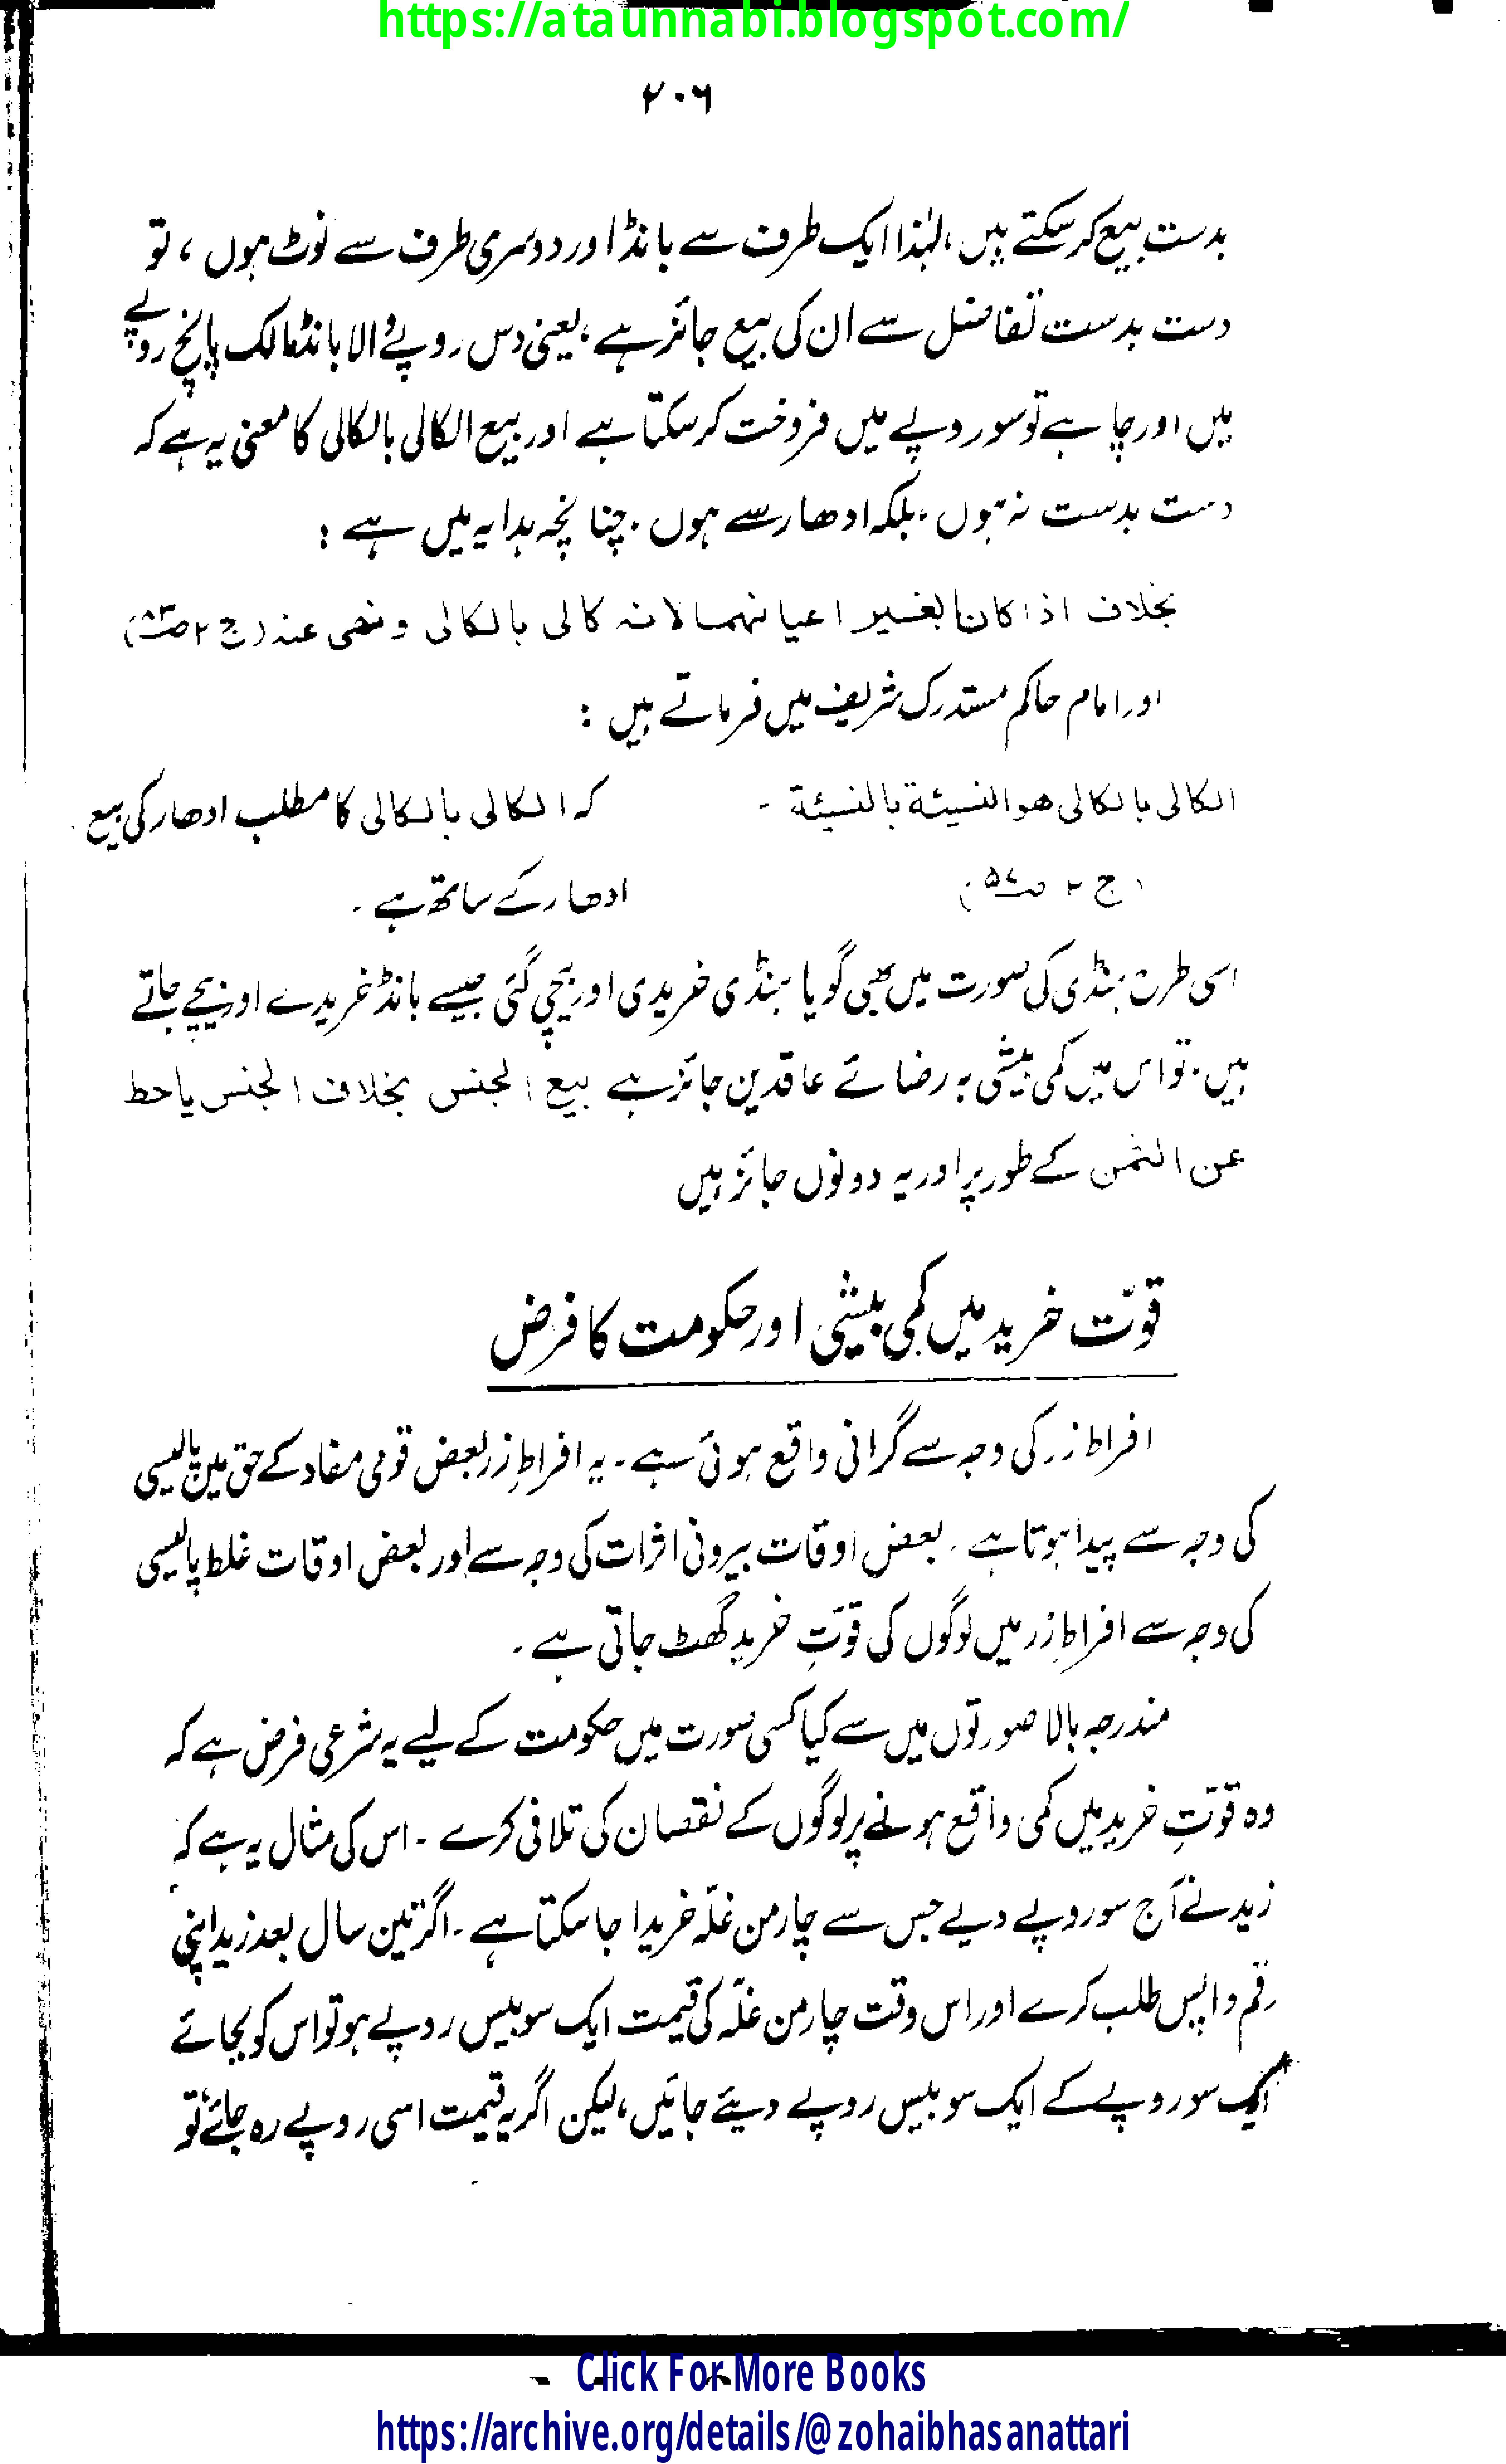 https://ataunnabi.blogspot.com/
۲۰۶
بدست بیع کر سکتے ہیں، لہٰذا ایک طرف سے بانڈ اور دوسری طرف سے نوٹ ہوں، تو
دست بدست تفاضل سے ان کی بیع جائز ہے، یعنی دس روپے والا بانڈ مالک پانچ روپے
میں اور چاہے تو سو روپے میں فروخت کر سکتا ہے اور بیع الکالی بالکالی کا معنی یہ ہے کہ
دست بدست نہ ہوں، بلکہ ادھار سے ہوں۔ چنانچہ ہدایہ میں ہے :
بخلاف اذا کان بغیر اعیانہما لانہ کالی بالکالی و نھی عنہ (ج ۲ ص۸۳)
اور امام حاکم مستدرک شریف میں فرماتے ہیں :
الکالی بالکالی ھو النسیئة بالنسیئة ۔ کہ الکالی بالکالی کا مطلب ادھار کی بیع
(ج ۲ ص۵۷) ادھار کے ساتھ ہے ۔
اسی طرح ہنڈی کی صورت میں بھی گویا ہنڈی خریدی اور بیچی گئی جیسے بانڈ خریدے اور بیچے جاتے
ہیں۔ تو اس میں کمی بیشی بہ رضائے عاقدین جائز ہے بیع الجنس بخلاف الجنس یا حط
عن الثمن کے طور پر اور یہ دونوں جائز ہیں
قوّت خرید میں کمی بیشی اور حکومت کا فرض
افراط زر کی وجہ سے گرانی واقع ہوئی ہے ۔ یہ افراطِ زر بعض قومی مفاد کے حق میں پالیسی
کی وجہ سے پیدا ہوتا ہے ۔ بعض اوقات بیرونی اثرات کی وجہ سے اور بعض اوقات غلط پالیسی
کی وجہ سے افراطِ زر میں لوگوں کی قوّتِ خرید گھٹ جاتی ہے ۔
مندرجہ بالا صورتوں میں سے کیا کسی صورت میں حکومت کے لیے یہ شرعی فرض ہے کہ
وہ قوّتِ خرید میں کمی واقع ہونے پر لوگوں کے نقصان کی تلافی کرے ۔ اس کی مثال یہ ہے کہ
زید نے آج سو روپے دیے جس سے چار من غلّہ خریدا جا سکتا ہے ۔ اگر تین سال بعد زید اپنی
رقم واپس طلب کرے اور اس وقت چار من غلّہ کی قیمت ایک سو بیس روپے ہو تو اس کو بجائے
ایک سو روپے کے ایک سو بیس روپے دیئے جائیں، لیکن اگر یہ قیمت اسی روپے رہ جائے تو
Click For More Books
https://archive.org/details/@zohaibhasanattari